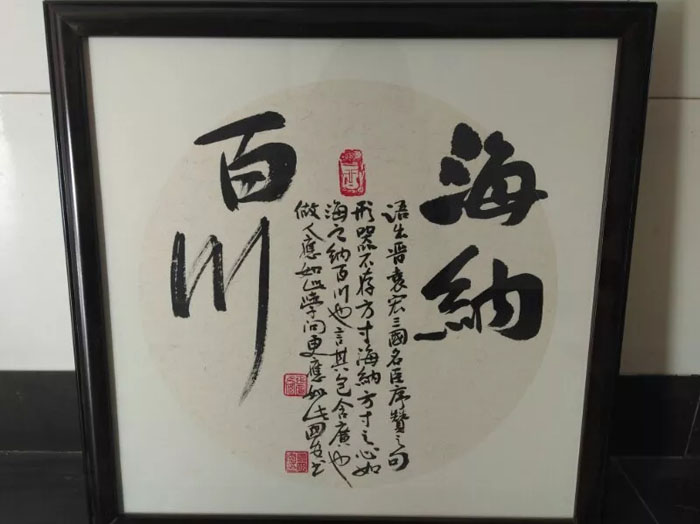 海納
百川
语出晋袁宏三國名臣序赞之句
形器不存方寸海納方寸之心如
海之納百川也言其包含廣也
做人應如此學问更應如此